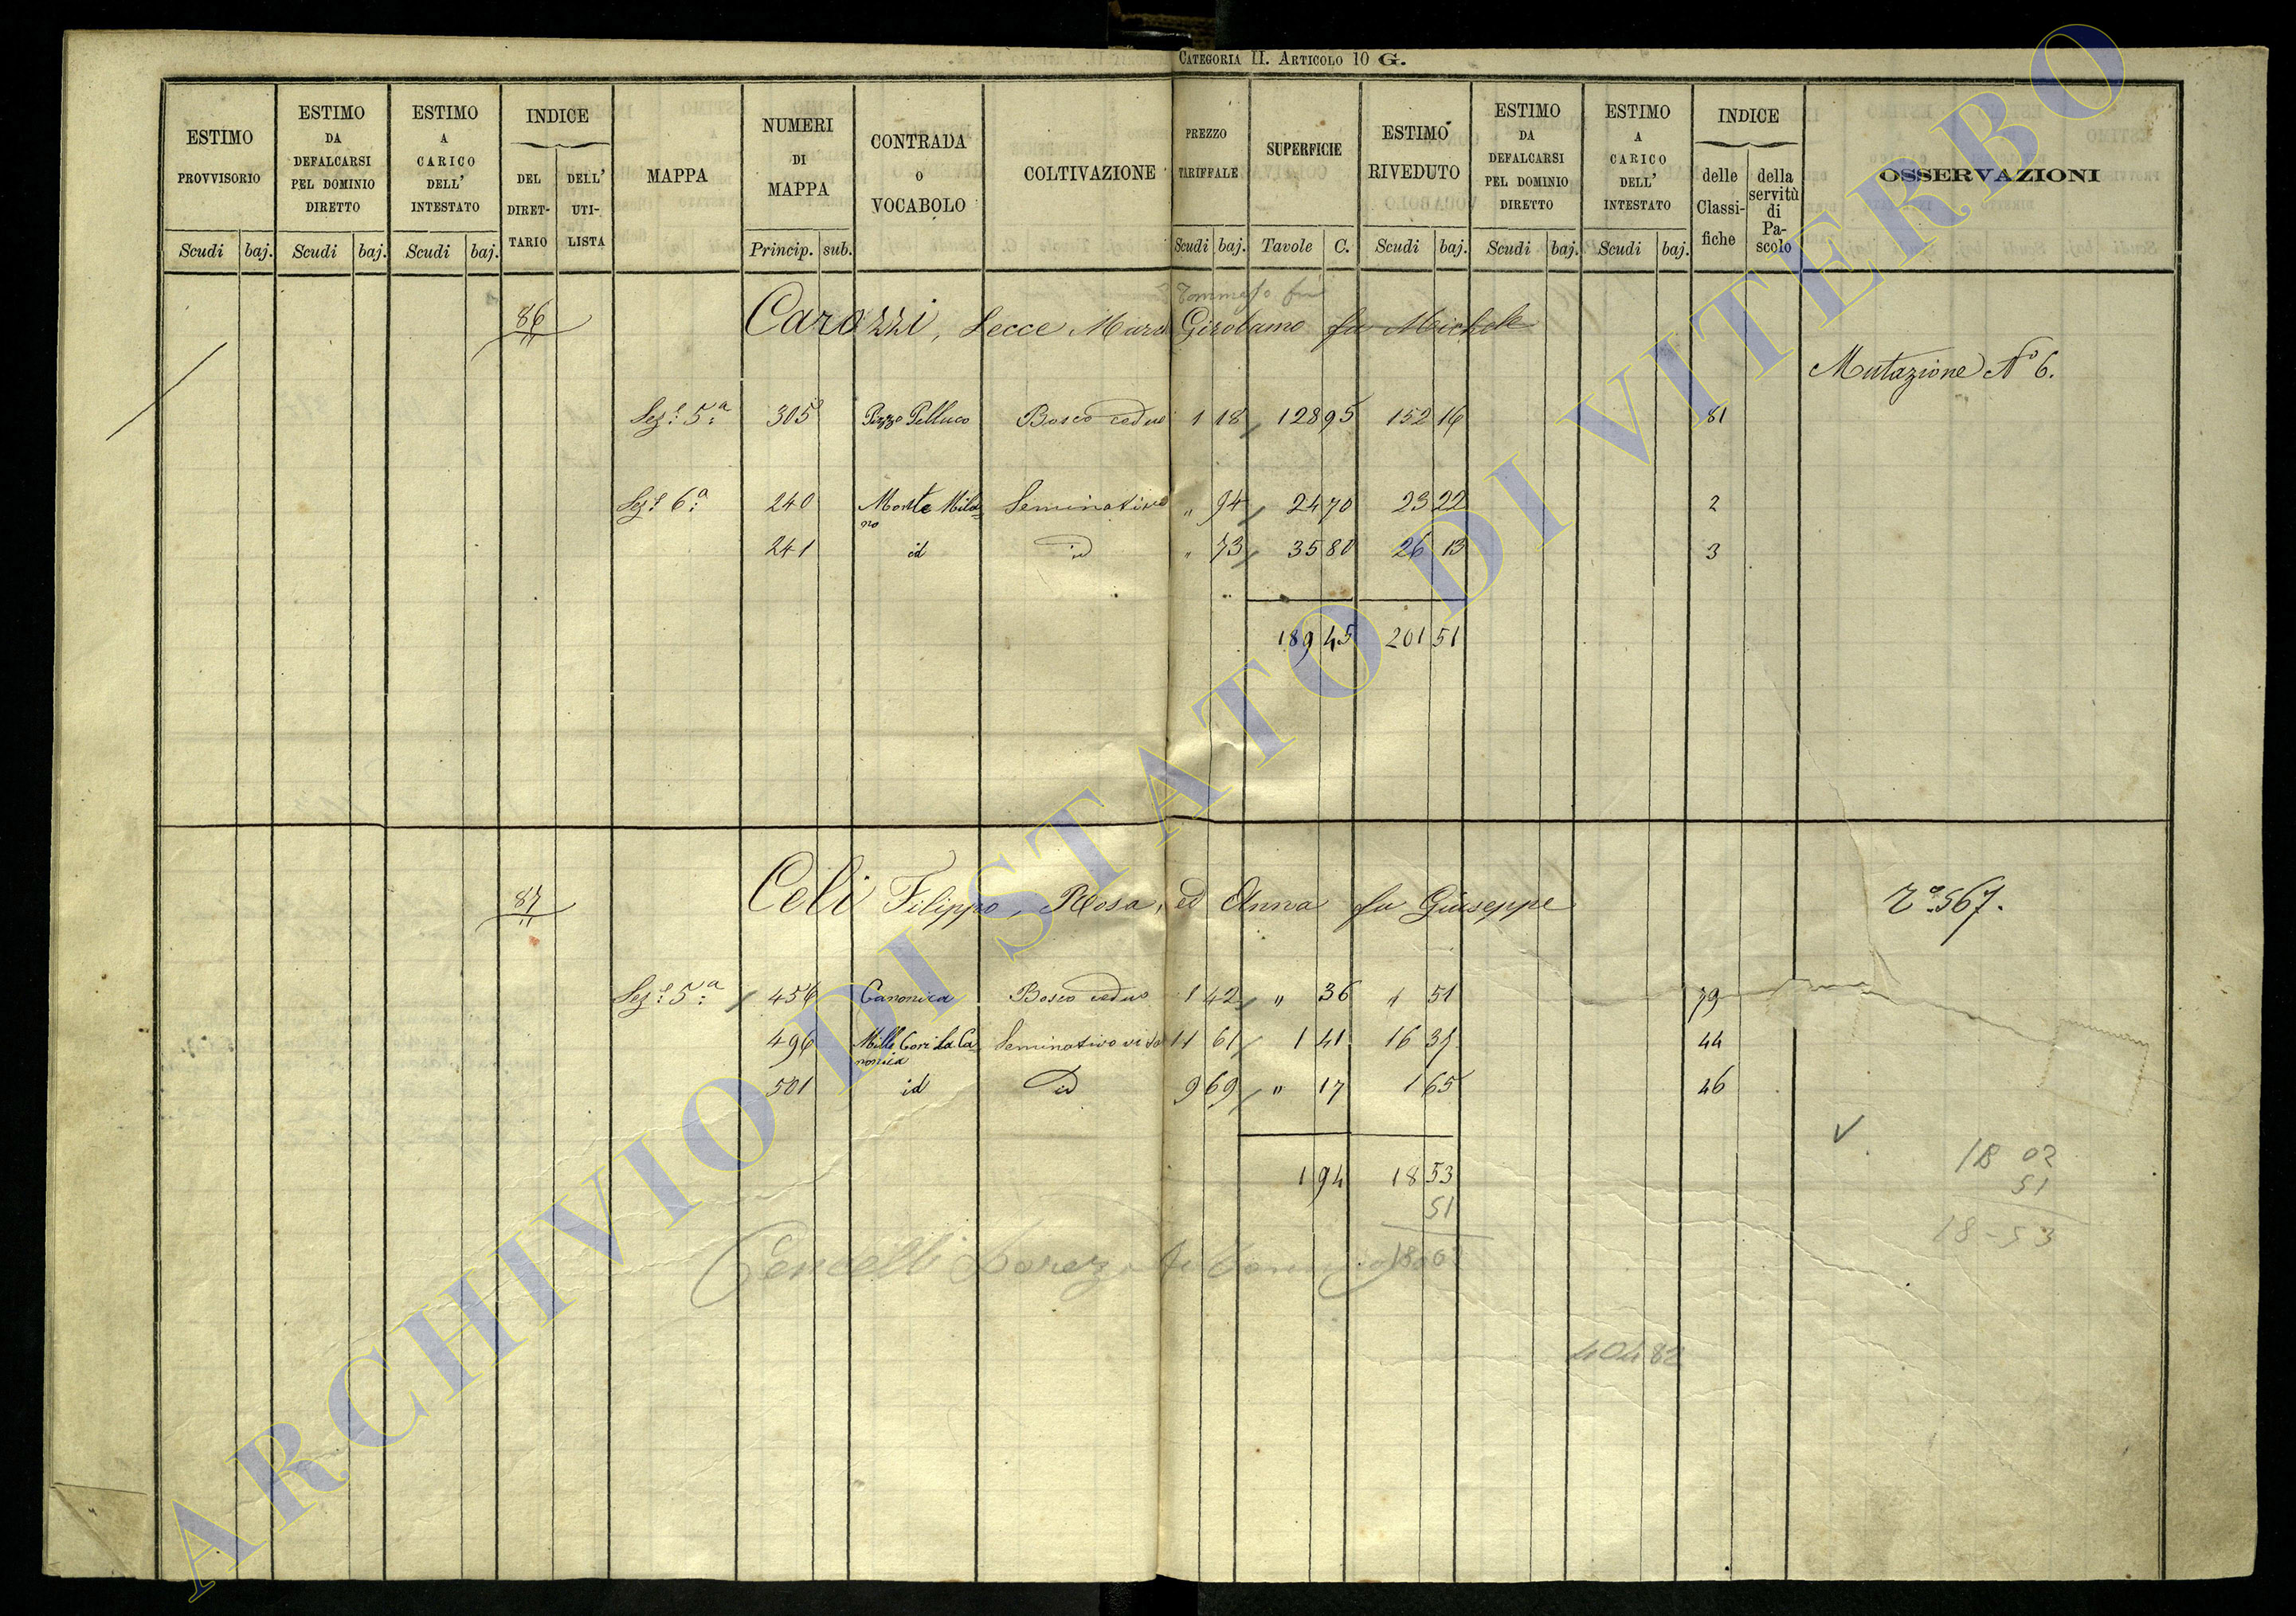 CATEGORIA II. ARTICOLO 10 G.
ESTIMO PROVVISORIO Scudi baj. ESTIMO DA DEFALCARSI PEL DOMINIO DIRETTO Scudi baj. ESTIMO A CARICO DELL' INTESTATO Scudi baj. INDICE DEL DIRET-TARIO DELL' UTI-LISTA MAPPA NUMERI DI MAPPA Princip. sub. CONTRADA O VOCABOLO COLTIVAZIONE PREZZO TARIFFALE Scudi baj. SUPERFICIE Tavole C. ESTIMO RIVEDUTO Scudi baj. ESTIMO DA DEFALCARSI PEL DOMINIO DIRETTO Scudi baj. ESTIMO A CARICO DELL' INTESTATO Scudi baj. INDICE delle Classi-fiche della servitù di Pa-scolo OSSERVAZIONI
Tommaso fu
86 Carozzi, Secce Mara Girolamo fu Michele
Mutazione N° 6.
Sez.e 5.a 305 Pozzo Pelluco Bosco ceduo 1 18 128 95 152 16 81
Sez.e 6.a 240 Monte Mila=no Seminativo " 94 24 70 23 22 2
241 id id " 73 35 80 26 13 3
189 45 201 51
87 Celi Filippo, Rosa, ed Anna fu Giuseppe 567.
Sez.e 5.a 456 Canonica Bosco ceduo 1 42 " 36 " 51 79
496 Mille Cori La Ca=nonica Seminativo vito 11 61 1 41 16 37 44
501 id id 9 69 " 17 1 65 46
1 94 18 53
51
18 02
18 02
51
18-53
Cencelli
404 82
ARCHIVIO DI STATO DI VITERBO